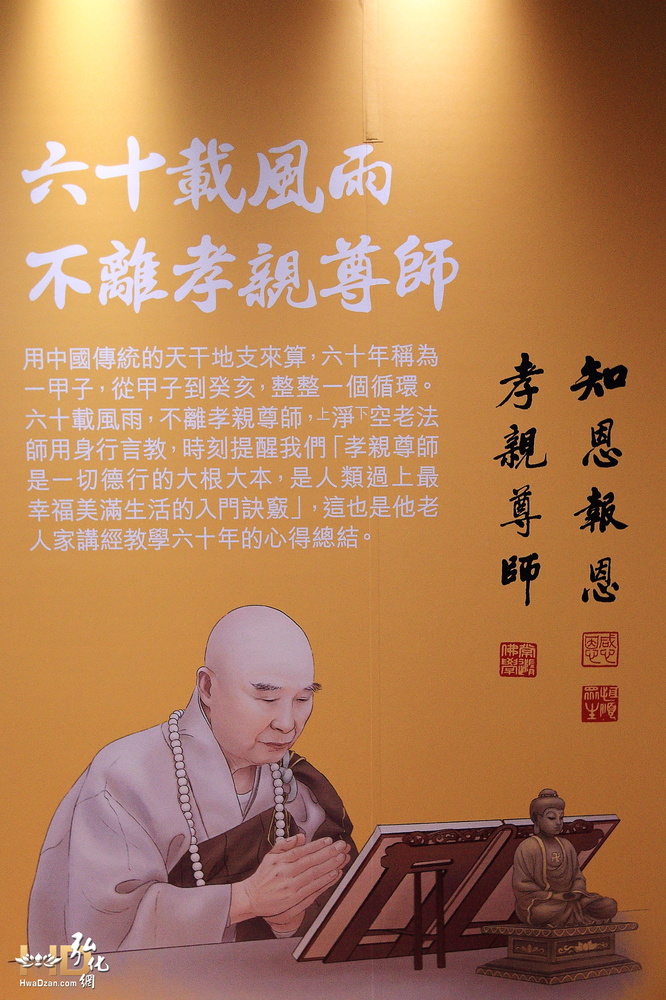 六十載風雨
不離孝親尊師
用中國傳統的天干地支來算,六十年稱為
一甲子,從甲子到癸亥,整整一個循環。
六十載風雨,不離孝親尊師,上淨下空老法
師用身行言教,時刻提醒我們「孝親尊師
是一切德行的大根大本,是人類過上最
幸福美滿生活的入門訣竅」,這也是他老
人家講經教學六十年的心得總結。
知恩報恩
孝親尊師
感恩
恒順
眾生
常隨
佛學
HD
弘化網
HwaDzan.com